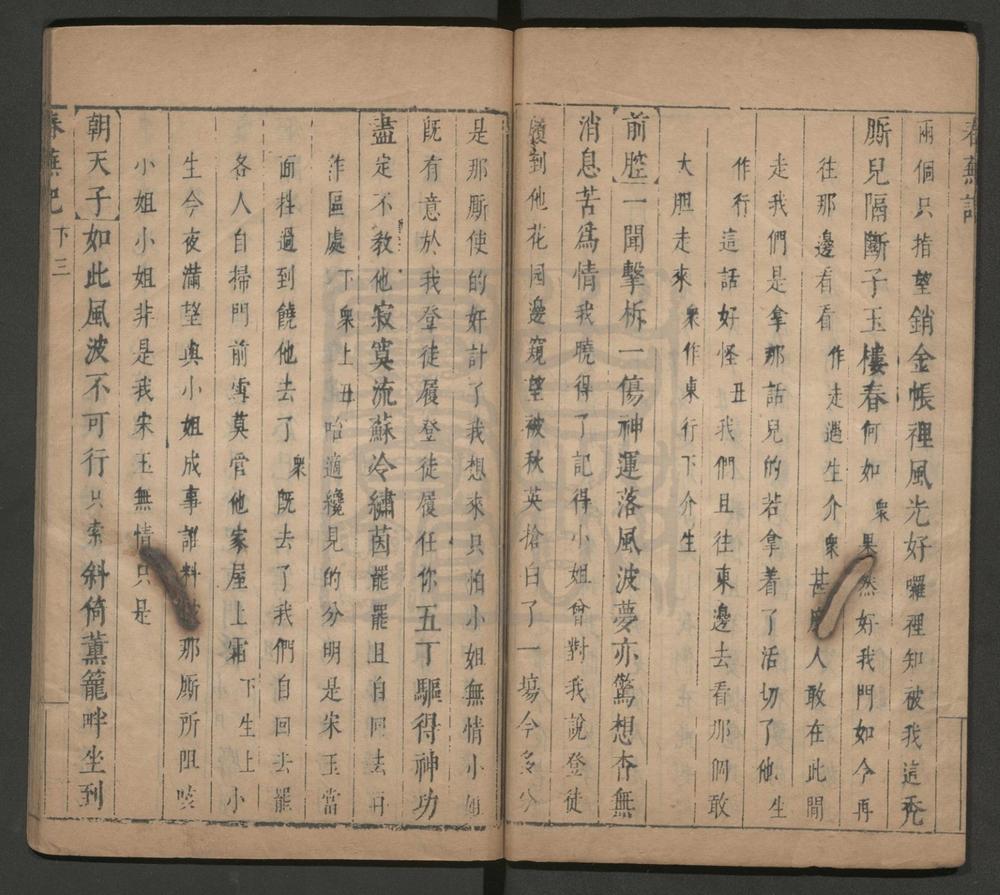 春蕪記
兩個只指望銷金帳裡風光好囉裡知被我這禿
廝兒隔斷子玉樓春何如衆果然好我門如今再
往那邊看看作走遇生介衆甚麼人敢在此間
走我們是拿那話兒的若拿着了活切了他生
作行這話好怪丑我們且往東邊去看那個敢
大胆走來衆作東行下介生
前腔一聞擊柝一傷神運落風波夢亦驚想杳無
消息苦爲情我曉得了記得小姐曾對我說登徒
履到他花园邊窺望被秋英搶白了一塲今多分
是那厮使的奸計了我想來只怕小姐無情小姐
既有意於我登徒履登徒履任你五丁驅得神功
盡定不教他寂寞流蘇冷繡茵罷罷且自回去再
作區處下衆上丑哈適纔見的分明是宋玉當
面抖過到饒他去了衆既去了我們自回去罷
各人自掃門前雪莫管他家屋上霜下生上小
生今夜滿望與小姐成事誰料被那厮所阻咳
小姐小姐非是我宋玉無情只是
朝天子如此風波不可行只索斜倚薰籠畔坐到
春蕪記 下 三